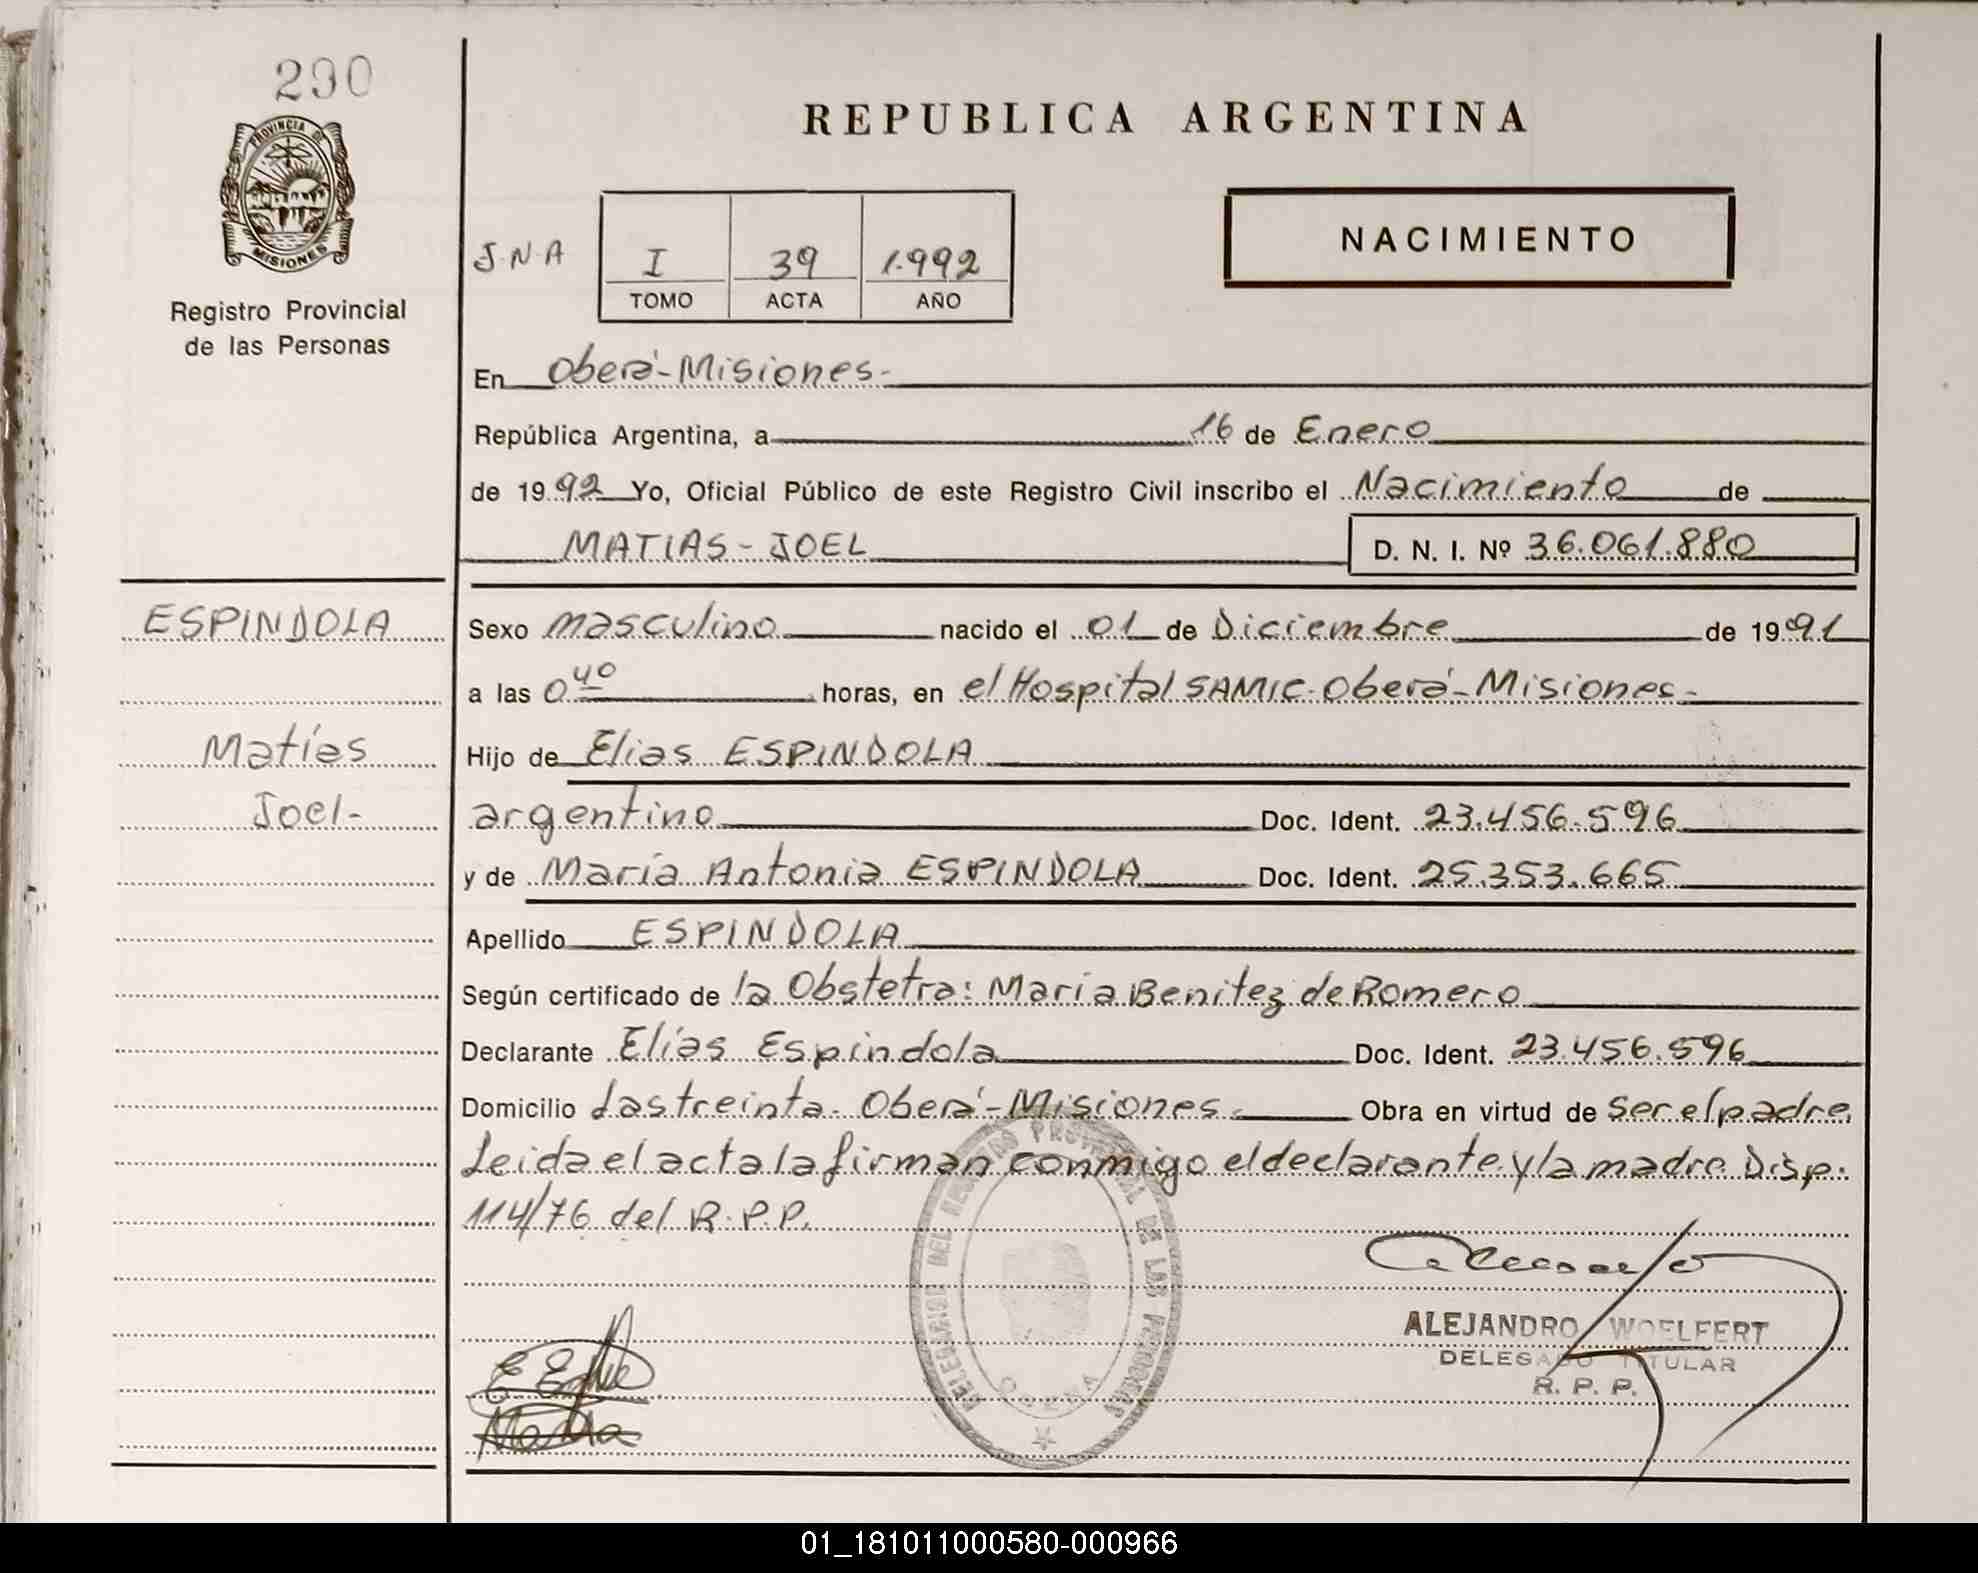 290
PROVINCIA DE
MISIONES
Registro Provincial
de las Personas
REPUBLICA ARGENTINA
NACIMIENTO
J.N.A
I 39 1.992
TOMO ACTA AÑO
En Oberá-Misiones-
República Argentina, a 16 de Enero
de 1992 Yo, Oficial Público de este Registro Civil inscribo el Nacimiento de
MATIAS-JOEL D. N. I. Nº 36.061.880
ESPINDOLA
Matías
Joel-
Sexo masculino nacido el 01 de Diciembre de 1991
a las 0 40 horas, en el Hospital SAMIC-Oberá-Misiones-
Hijo de Elias ESPINDOLA
argentino Doc. Ident. 23.456.596
y de María Antonia ESPINDOLA Doc. Ident. 25.353.665
Apellido ESPINDOLA
Según certificado de la Obstetra: María Benitez de Romero
Declarante Elías Espindola Doc. Ident. 23.456.596
Domicilio Las treinta-Oberá-Misiones- Obra en virtud de ser el padre
Leida el acta la firman conmigo el declarante y la madre Disp.
114/76 del R.P.P.
DEL REGISTRO PROVINCIAL DE LAS PERSONAS
OBERA
ALEJANDRO WOELFERT
DELEGADO TITULAR
R. P. P.
01_181011000580-000966